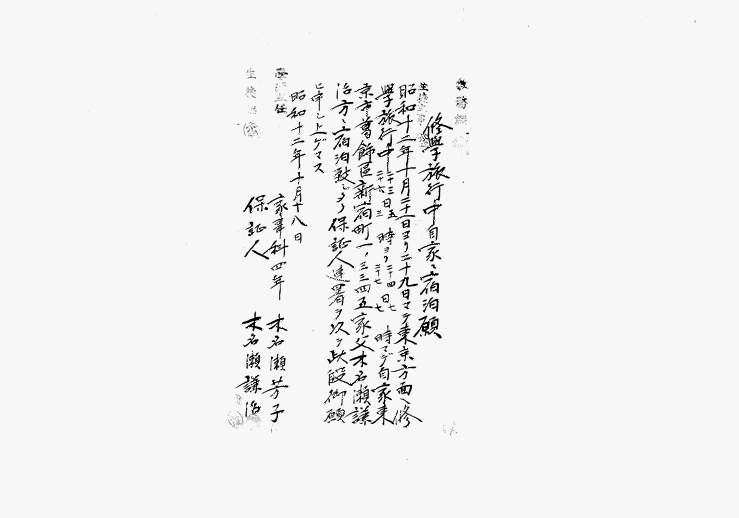 修學旅行中自家ニ宿泊願
昭和十二年十月二十一日ヨリ二十九日マデ東京方面ヘ修
學旅行中二十三日五時ヨリ二十四日七時マデ自家東
二十六 三 二十七 七
京市葛飾區新宿町一ノ三三四五家父木名瀬謙
治方ニ宿泊致シ度ク保証人連署ヲ以テ此段御願
ヒ申シ上ゲマス
昭和十二年十月十八日
家事科四年 木名瀬芳子
保証人 木名瀬謙治